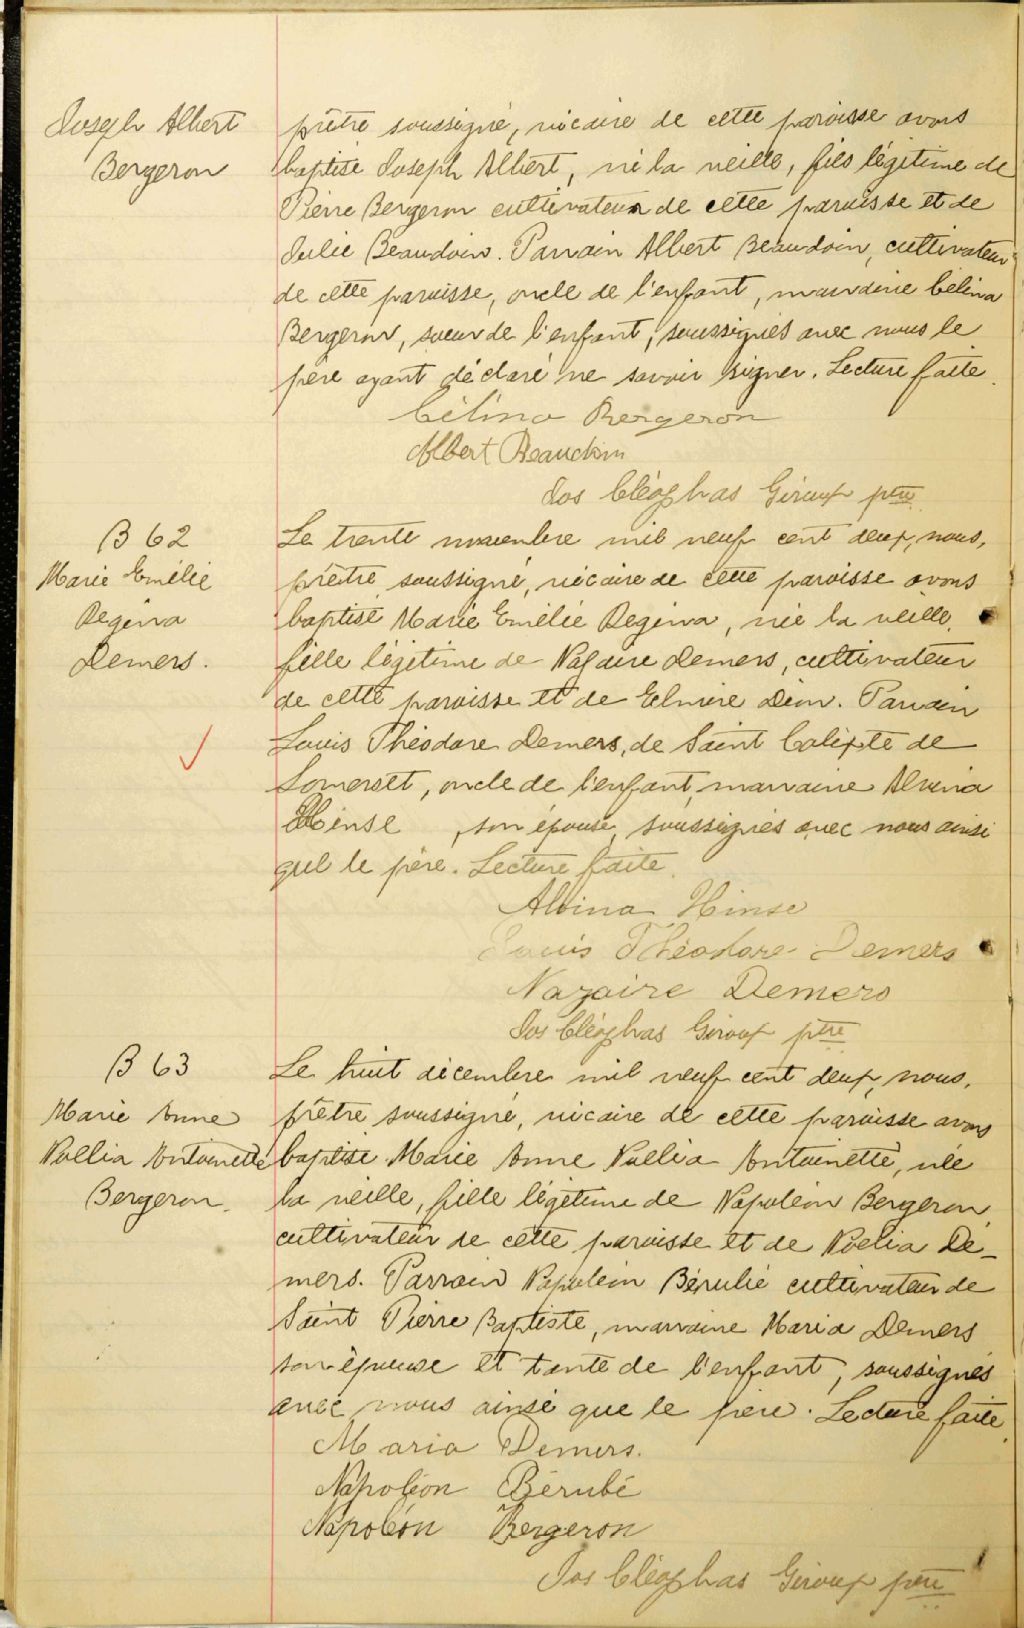 Joseph Albert
Bergeron
prêtre soussigné, vicaire de cette paroisse avons
baptisé Joseph Albert, né la veille, fils légitime de
Pierre Bergeron cultivateur de cette paroisse et de
Julie Beaudoin. Parrain Albert Beaudoin, cultivateur
de cette paroisse, oncle de l'enfant, marraine Célina
Bergeron, soeur de l'enfant, soussignés avec nous le
père ayant déclaré ne savoir signer. Lecture faite.
Célina Bergeron
Albert Beaudoin
Jos Cléophas Giroux ptre
B 62
Marie Emélie
Regina
Demers.
Le trente novembre mil neuf cent deux, nous,
prêtre soussigné, vicaire de cette paroisse avons
baptisé Marie Emélie Regina, née la veille,
fille légitime de Nazaire Demers, cultivateur
de cette paroisse et de Elmire Dion. Parrain
Louis Théodore Demers, de Saint Calixte de
Somerset, oncle de l'enfant, marraine Alvina
Hinse, son épouse, soussignés avec nous ainsi
que le père. Lecture faite.
Alvina Hinse
Louis Théodore Demers
Nazaire Demers
Jos Cléophas Giroux ptre
B 63
Marie Anne
Noëllia Antoinette
Bergeron.
Le huit décembre mil neuf cent deux, nous,
prêtre soussigné, vicaire de cette paroisse avons
baptisé Marie Anne Noëllia Antoinette, née
la veille, fille légitime de Napoléon Bergeron,
cultivateur de cette paroisse et de Noélia De-
mers. Parrain Napoléon Bérulié cultivateur de
Saint Pierre Baptiste, marraine Maria Demers
son épouse et tante de l'enfant, soussignés
avec nous ainsi que le père. Lecture faite.
Maria Demers.
Napoléon Bérubé
Napoléon Bergeron
Jos Cléophas Giroux ptre